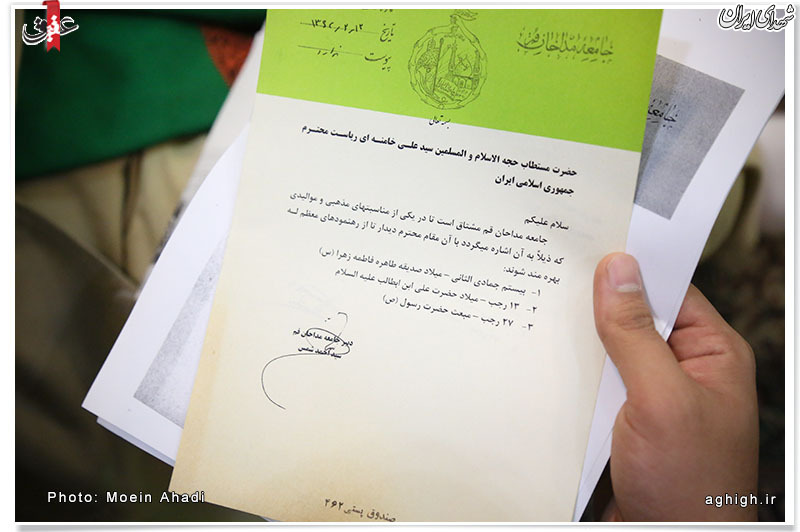 شهدای ایران
عقیق
جامعه مداحان قم
تاریخ ۱۳۶۴,۲,۱۲
پیوست ندارد
بسمه تعالی
حضرت مستطاب حجه الاسلام و المسلمین سید علی خامنه ای ریاست محترم
جمهوری اسلامی ایران
سلام علیکم
جامعه مداحان قم مشتاق است تا در یکی از مناسبتهای مذهبی و موالیدی
که ذیلاً به آن اشاره میگردد با آن مقام محترم دیدار تا از رهنمودهای معظم له
بهره مند شوند:
۱- بیستم جمادی الثانی - میلاد صدیقه طاهره فاطمه زهرا (س)
۲- ۱۳ رجب - میلاد حضرت علی ابن ابطالب علیه السلام
۳- ۲۷ رجب - مبعث حضرت رسول (ص)
دبیر جامعه مداحان قم
سید احمد شمس
صندوق پستی ۴۶۲
Photo: Moein Ahadi
aghigh.ir